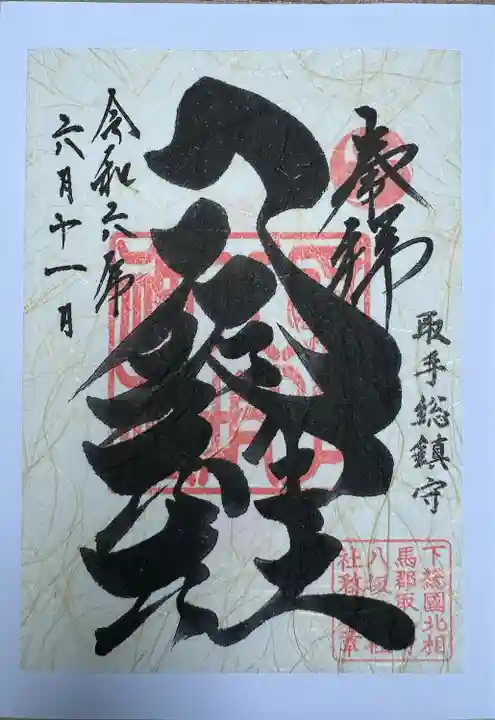 奉拝
取手総鎮守
八坂神社
令和六年
六月十一日
下総國北相
馬郡取
八坂社
社務章